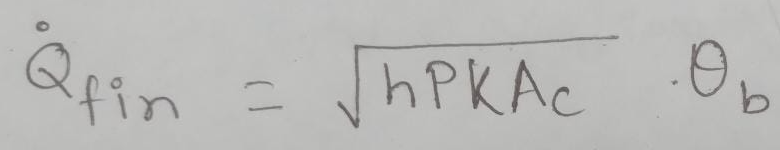 Q̇_fin = √(hPKA_c) . θ_b